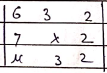 6 3 2
7 x 2
3 2